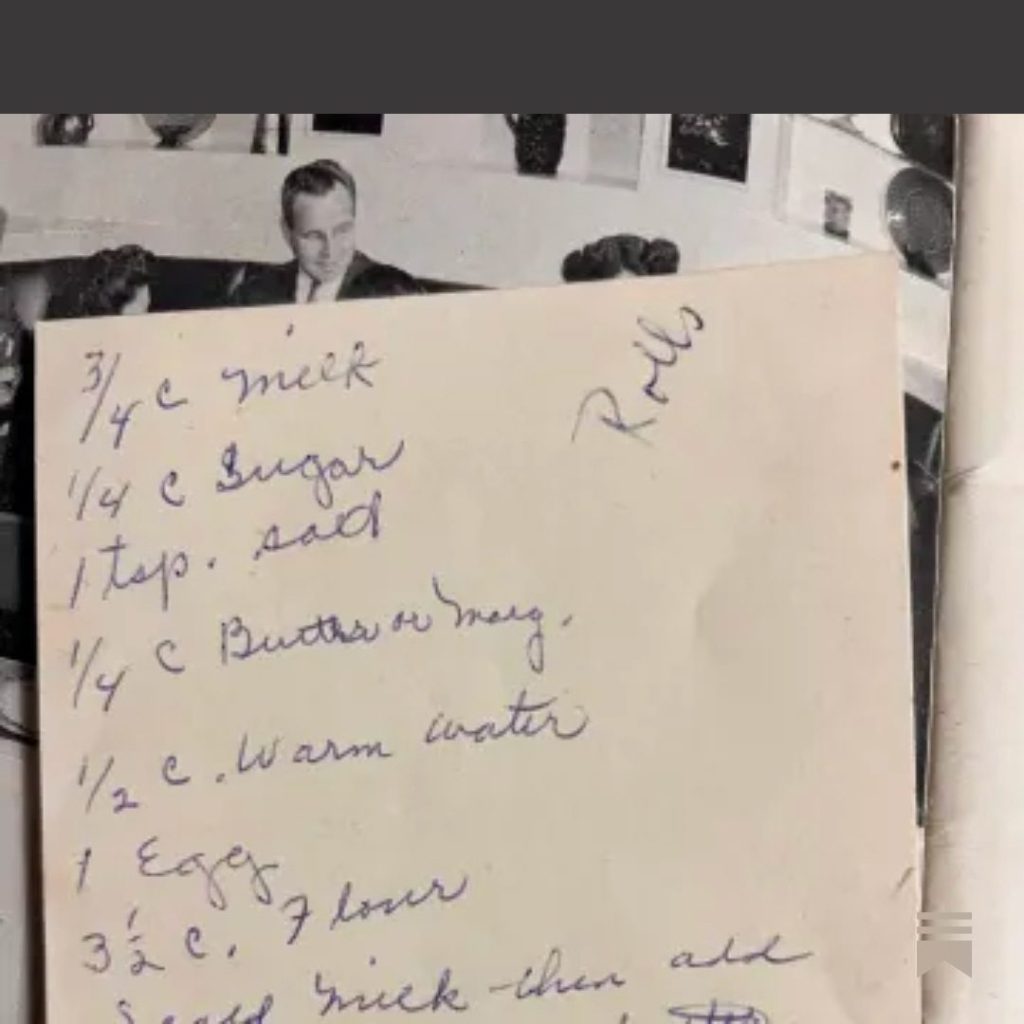 Rolls
3/4 c milk
1/4 c Sugar
1 tsp. salt
1/4 c Butter or Marg.
1/2 c. Warm water
1 Egg
3 1/2 c. Flour
Scald Milk - then add